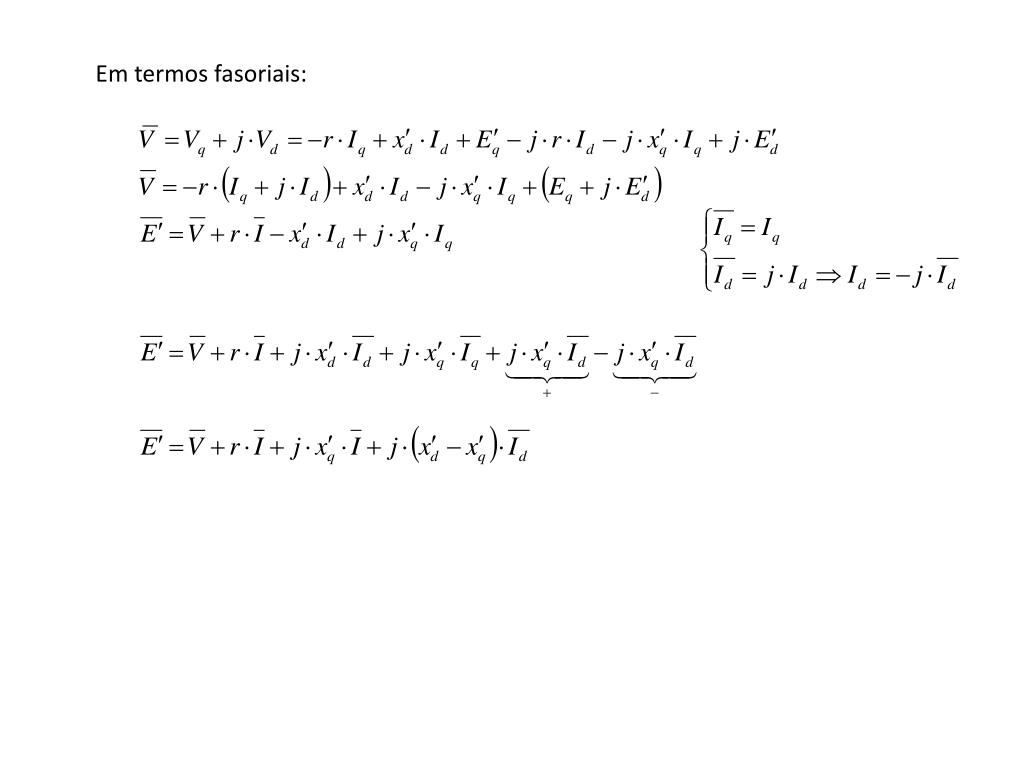 Em termos fasoriais:
V̅ = V_q + j·V_d = −r·I_q + x′_d·I_d + E′_q − j·r·I_d − j·x′_q·I_q + j·E′_d
V̅ = −r·(I_q + j·I_d) + x′_d·I_d − j·x′_q·I_q + (E_q + j·E′_d)
E̅′ = V̅ + r·I̅ − x′_d·I_d + j·x′_q·I_q
{ I̅_q = I_q
I̅_d = j·I_d ⇒ I_d = −j·I̅_d
E̅′ = V̅ + r·I̅ + j·x′_d·I̅_d + j·x′_q·I̅_q + j·x′_q·I̅_d − j·x′_q·I̅_d
+ −
E̅′ = V̅ + r·I̅ + j·x′_q·I̅ + j·(x′_d − x′_q)·I̅_d